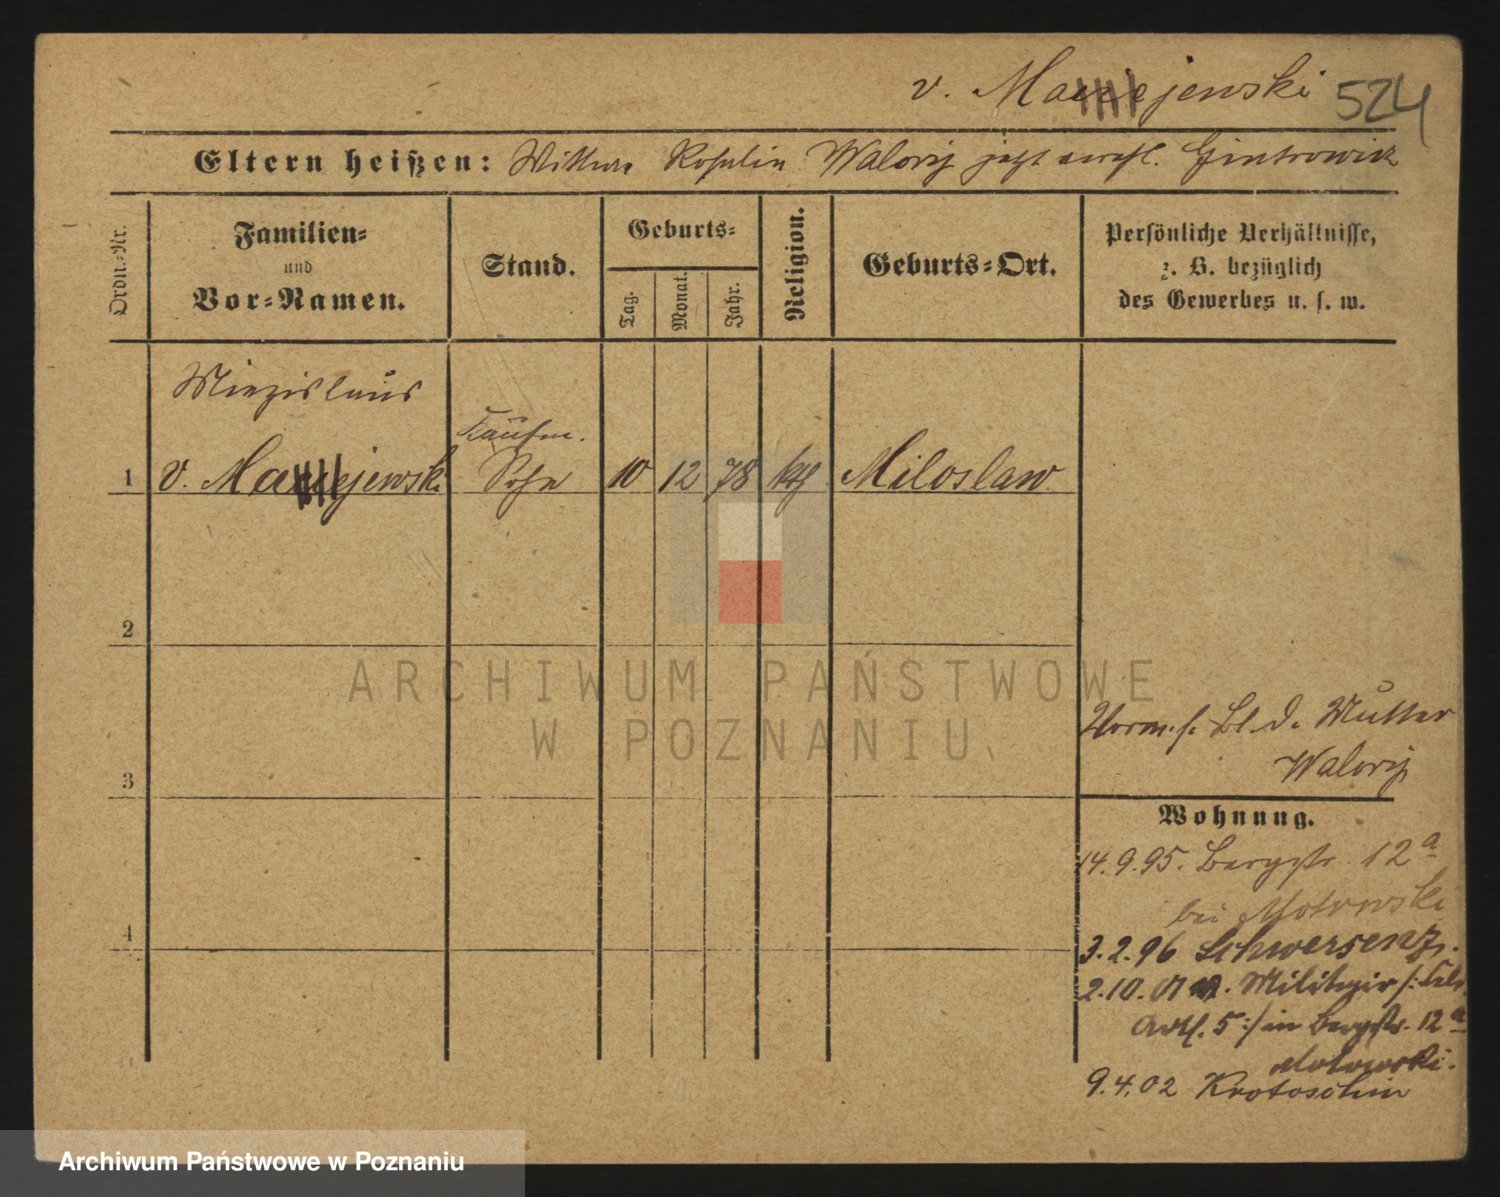 v. Maciejewski 524
Eltern heißen: Wittwe Rosalie jetzt verehl.
Ordn.-Nr.
Familien-
und
Vor-Namen.
Stand.
Geburts-
Tag.
Monat.
Jahr.
Religion.
Geburts-Ort.
Persönliche Verhältnisse,
z. B. bezüglich
des Gewerbes u. s. w.
Miezislaus
Kaufm.
1 v. Maciejewski Sohn 10 12 78 kth Miloslaw
2
3
4
ARCHIWUM PAŃSTWOWE
W POZNANIU
Bl. d. Mutter
Wohnung.
14.9.95. Bergstr. 12a
bei
3.2.96 Schwersenz.
2.10.01 v. Militair /:
Artl. 5:/ in Bergstr. 12a
9.4.02 Krotoschin
Archiwum Państwowe w Poznaniu